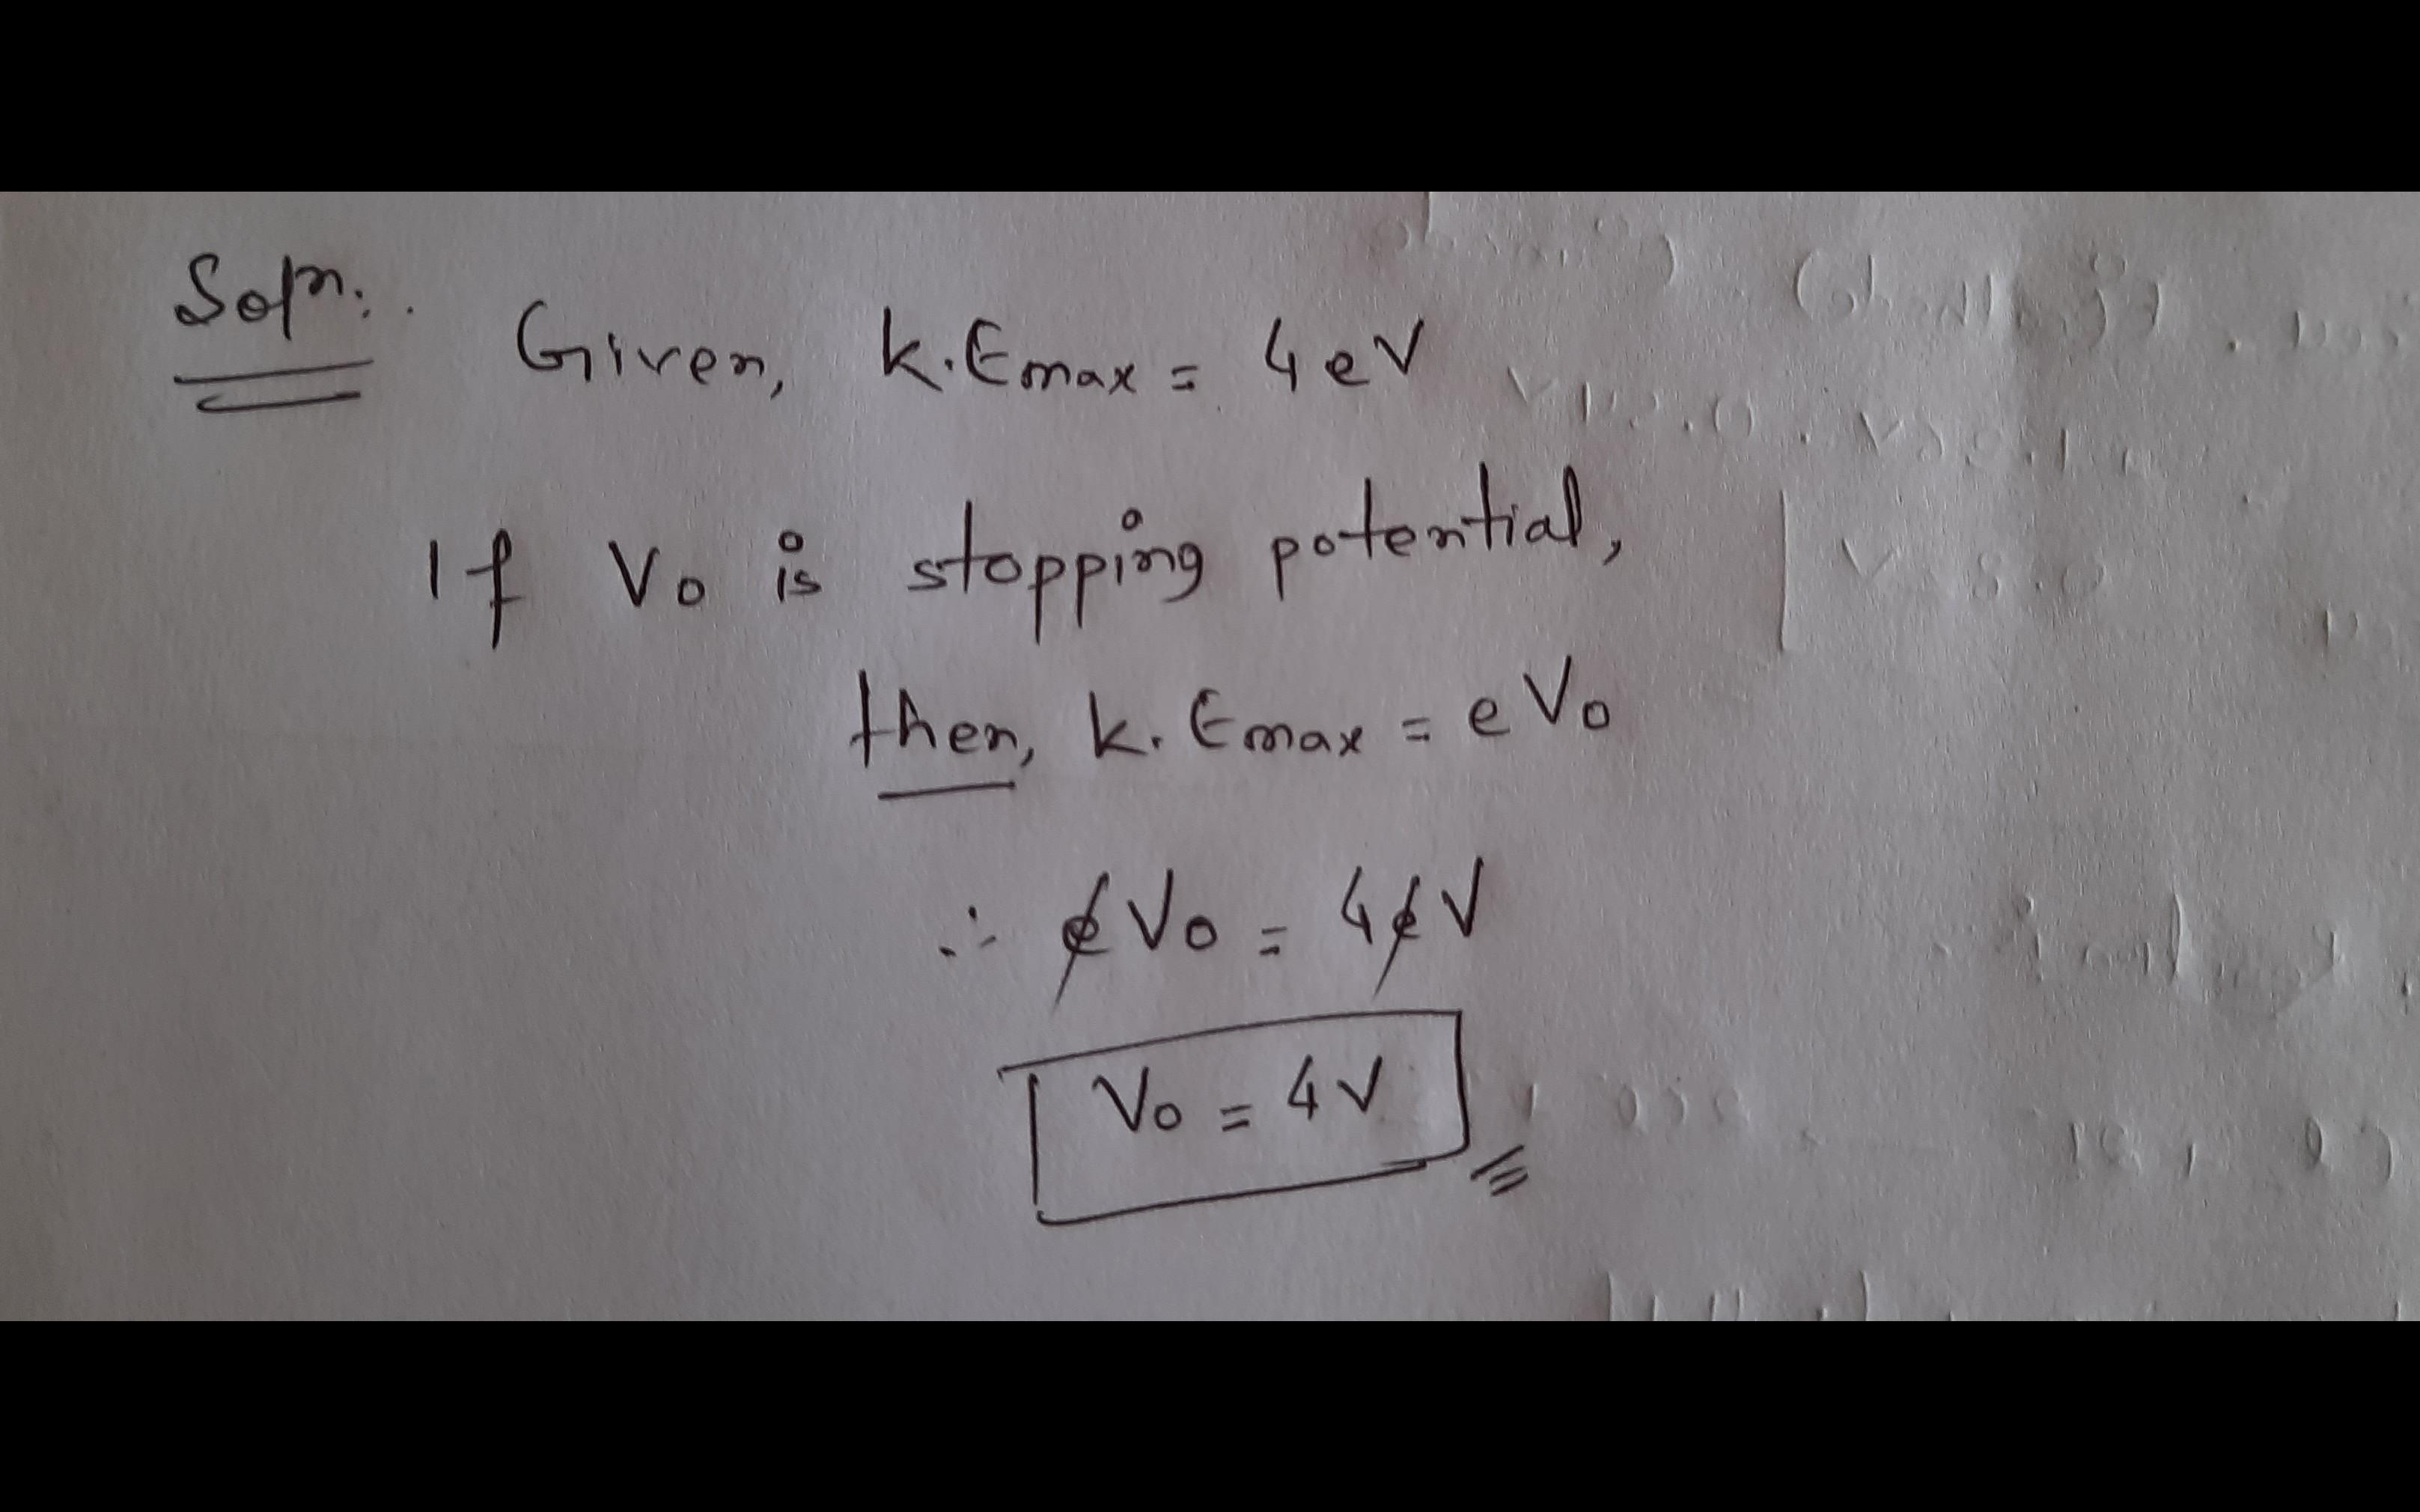 Soln:.
Given, K.Emax = 4eV
If Vo is stopping potential,
then, K.Emax = eVo
∴ eVo = 4eV
Vo = 4V